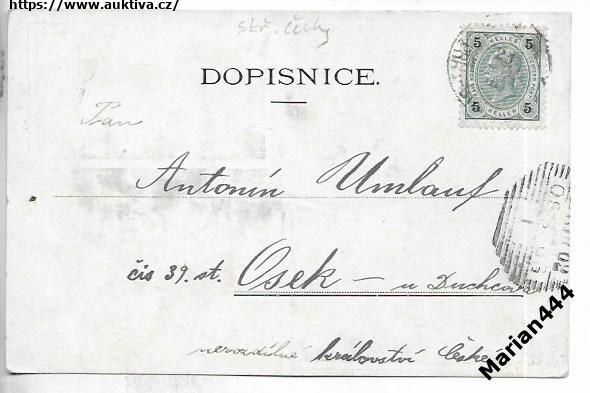 https://www.auktiva.cz/
stř. Čechy
DOPISNICE.
5 HELLER 5
5 HELLER 5
Pan
Antonín Umlauf
čis 39. st. Osek – u Duchcova
nerozdílné království České
Marian444